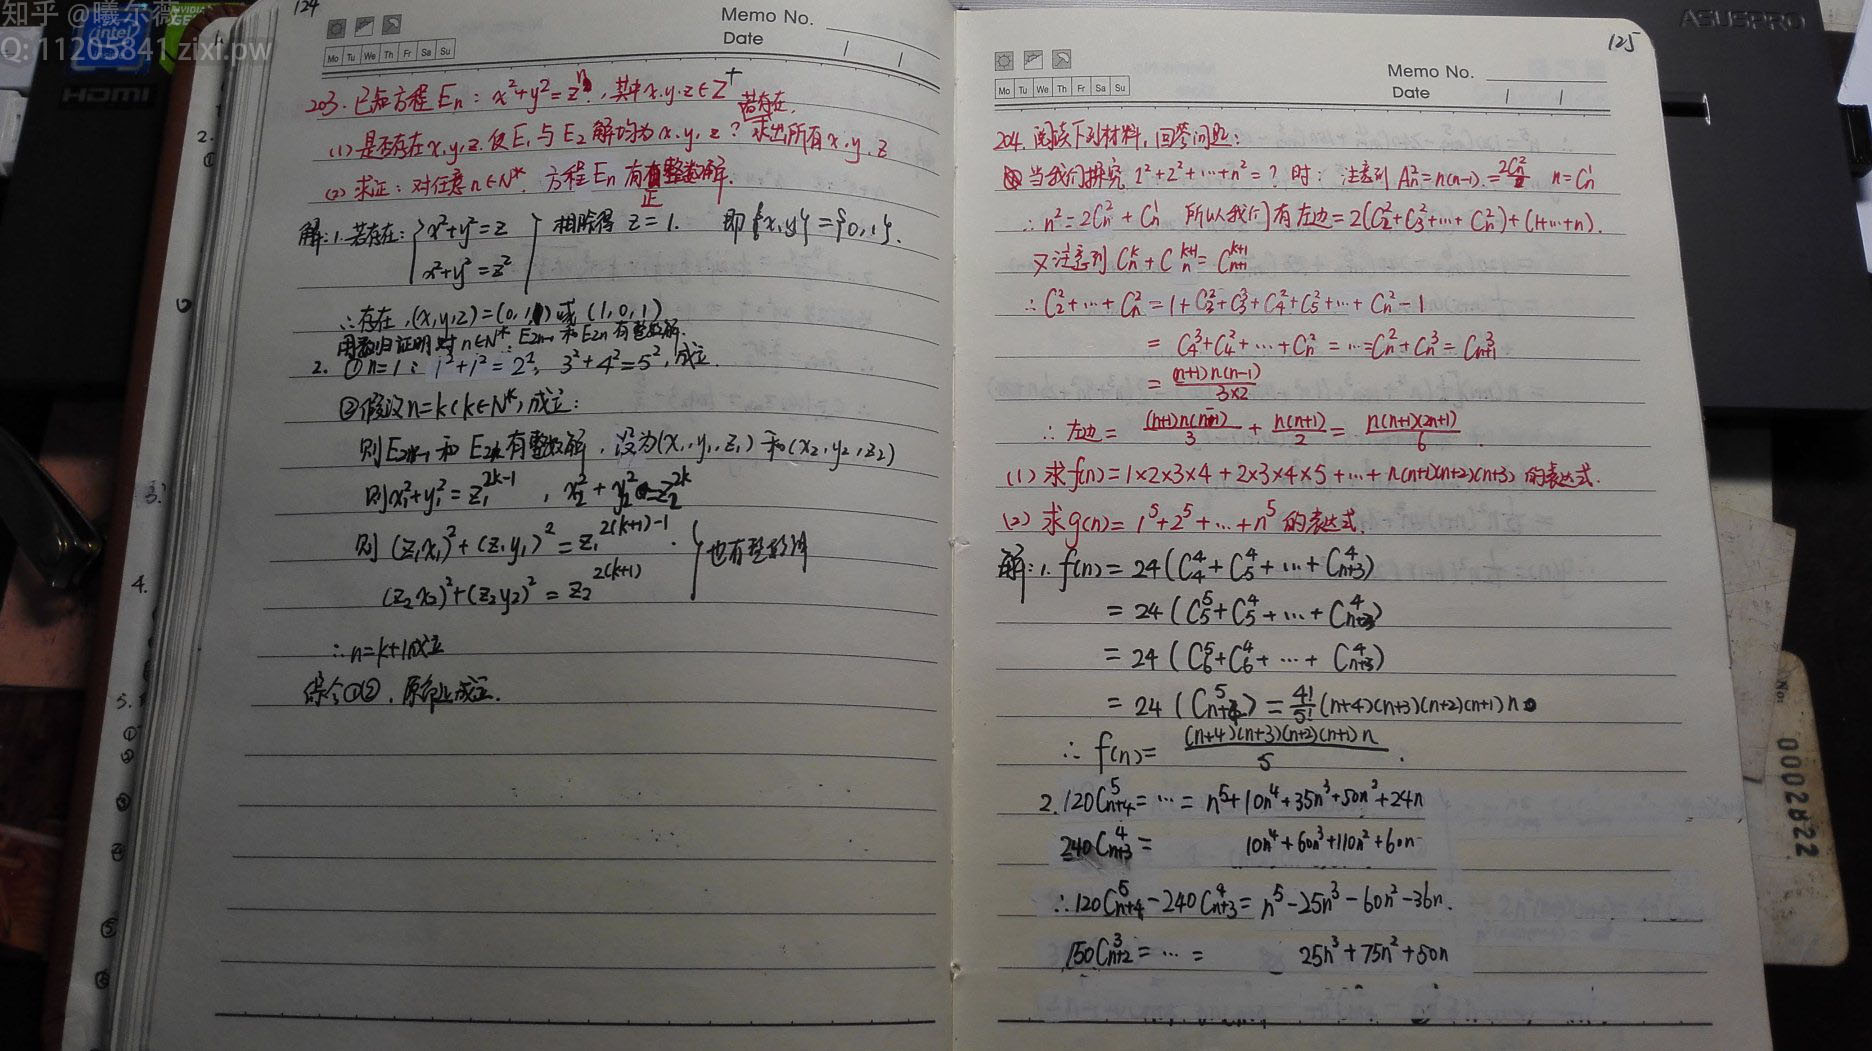 知乎 @曦尔薇
Q: 11205841 zixi.pw
intel
HDMI
124
Memo No.
Date
Mo Tu We Th Fr Sa Su
203. 已知方程 Eₙ: x²+y²=zⁿ, 其中x.y.z∈Z⁺
若存在,
(1) 是否存在x,y,z. 使E₁与E₂解均为x.y,z? 求出所有x,y,z
(2) 求证: 对任意n∈N*, 方程Eₙ有正整数解.
解:1. 若存在: { x²+y²=z
x²+y²=z² } 相除得 z=1. 即{x,y}={0,1}.
∴存在, (x,y,z)=(0,1,1)或(1,0,1)
用数归证明对n∈N*: E₂ₙ₋₁和E₂ₙ有整数解.
2. ①n=1: 1²+1²=2¹, 3²+4²=5², 成立.
②假设n=k(k∈N*)成立:
则E₂ₖ₋₁和E₂ₖ有整数解, 设为(x₁,y₁,z₁)和(x₂,y₂,z₂)
则x₁²+y₁²=z₁^{2k-1}, x₂²+y₂²=z₂^{2k}
则 (z₁x₁)²+(z₁y₁)²=z₁^{2(k+1)-1}.
(z₂x₂)²+(z₂y₂)²=z₂^{2(k+1)} } 也有整数解
∴n=k+1成立
综合①②, 原命题成立.
2.
3.
4.
5.
ASUSPRO
125
Memo No.
Date
Mo Tu We Th Fr Sa Su
204. 阅读下列材料, 回答问题:
当我们探究 1²+2²+…+n²=? 时: 注意到 Aₙ²=n(n-1)=2Cₙ² n=Cₙ¹
∴n²=2Cₙ²+Cₙ¹ 所以我们有左边=2(C₂²+C₃²+…+Cₙ²)+(1+…+n).
又注意到 Cₙᵏ+Cₙᵏ⁺¹=Cₙ₊₁ᵏ⁺¹
∴C₂²+…+Cₙ²=1+C₃²+C₃³+C₄²+C₅²+…+Cₙ²-1
=C₄³+C₄²+…+Cₙ²=…=Cₙ²+Cₙ³=Cₙ₊₁³
=(n+1)n(n-1)/3×2
∴左边= (n+1)n(n-1)/3 + n(n+1)/2 = n(n+1)(2n+1)/6.
(1) 求f(n)=1×2×3×4+2×3×4×5+…+n(n+1)(n+2)(n+3) 的表达式.
(2) 求g(n)=1⁵+2⁵+…+n⁵的表达式.
解:1. f(n)=24(C₄⁴+C₅⁴+…+Cₙ₊₃⁴)
=24(C₅⁵+C₅⁴+…+Cₙ₊₃⁴)
=24(C₆⁵+C₆⁴+…+Cₙ₊₃⁴)
=24(Cₙ₊₄⁵)=4!/5!(n+4)(n+3)(n+2)(n+1)n
∴f(n)= (n+4)(n+3)(n+2)(n+1)n/5.
2. 120Cₙ₊₄⁵=…=n⁵+10n⁴+35n³+50n²+24n
240Cₙ₊₃⁴= 10n⁴+60n³+110n²+60n
∴120Cₙ₊₄⁵-240Cₙ₊₃⁴=n⁵-25n³-60n²-36n.
150Cₙ₊₂³=…= 25n³+75n²+50n
No:
0002822